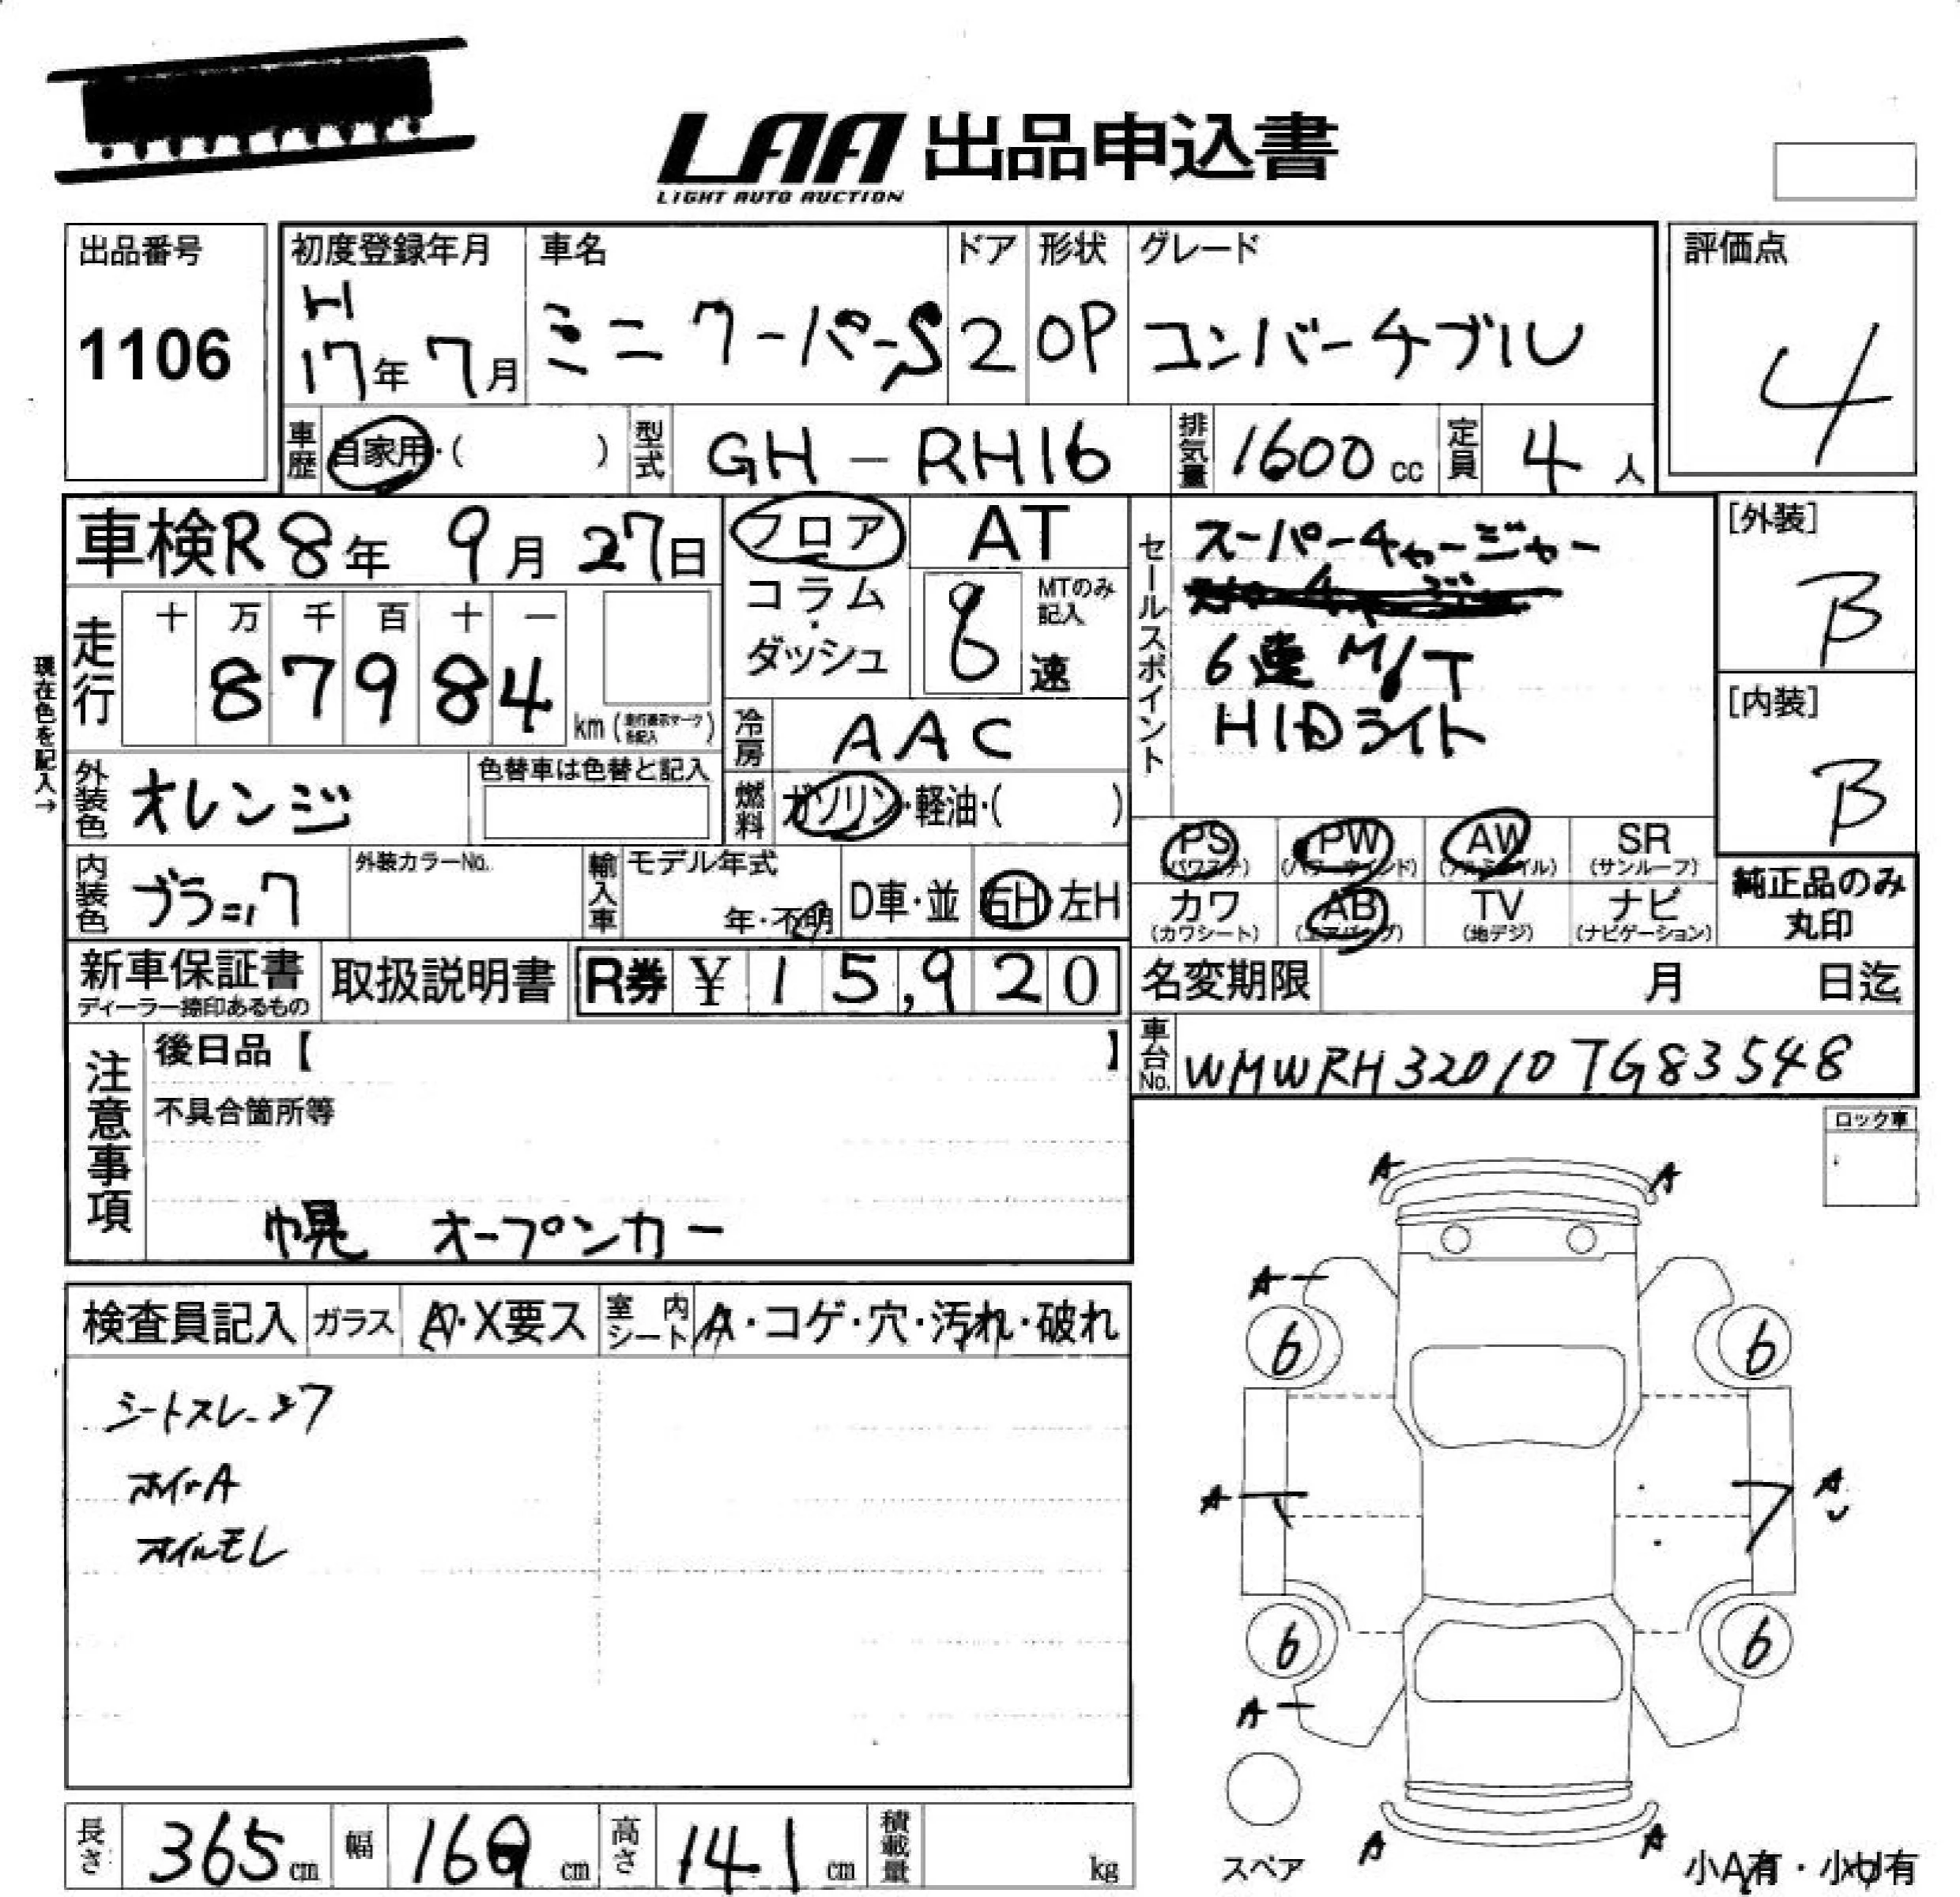 LAA 出品申込書
LIGHT AUTO AUCTION
出品番号
1106
初度登録年月
H
17年 7月
車名
ミニ クーパーS
ドア
2
形状
OP
グレード
コンバーチブル
評価点
4
車歴
自家用・( )
型式
GH-RH16
排気量
1600 cc
定員
4 人
車検R 8年 9月 27日
フロア
コラム
・
ダッシュ
AT
MTのみ
記入
速
セールスポイント
スーパーチャージャー
6速 M/T
HIDライト
[外装]
B
[内装]
B
現在色を記入→
走行
十 万 千 百 十 一
8 7 9 8 4
km
冷房
AAC
外装色
オレンジ
色替車は色替と記入
燃料
ガソリン・軽油・( )
PS
(パワステ)
PW
(パワーウィンド)
AW
(アルミホイル)
SR
(サンルーフ)
カワ
(カワシート)
AB
(エアバッグ)
TV
(地デジ)
ナビ
(ナビゲーション)
純正品のみ
丸印
内装色
ブラック
外装カラーNo.
輸入車
モデル年式
年・不明
D車・並
右H 左H
新車保証書
ディーラー捺印あるもの
取扱説明書
R券 ¥ 15,920
名変期限 月 日迄
車台No.
WMWRH32010TG83548
注意事項
後日品【 】
不具合箇所等
幌 オープンカー
ロック車
検査員記入
ガラス
A・X要ス
室内
シート
A・コゲ・穴・汚れ・破れ
シートスレ
ホイールA
オイルモレ
A A
A
6 6
A A
6 6
A
A A
スペア
小A有・小U有
長さ
365 cm
幅
cm
高さ
141 cm
積載量
kg